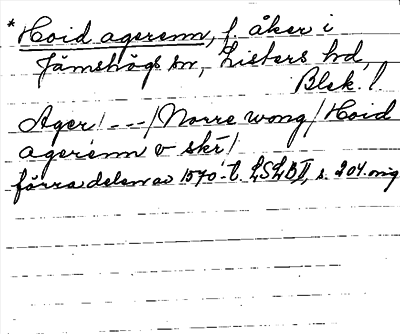 *Hoid agerenn, f. åker i
Jämshögs sn, Listers hd,
Blek. /
Ager / --- / Norre wong / Hoid
agerenn o skr /
förra delen av 1570-t. LSLBII, s. 204. orig